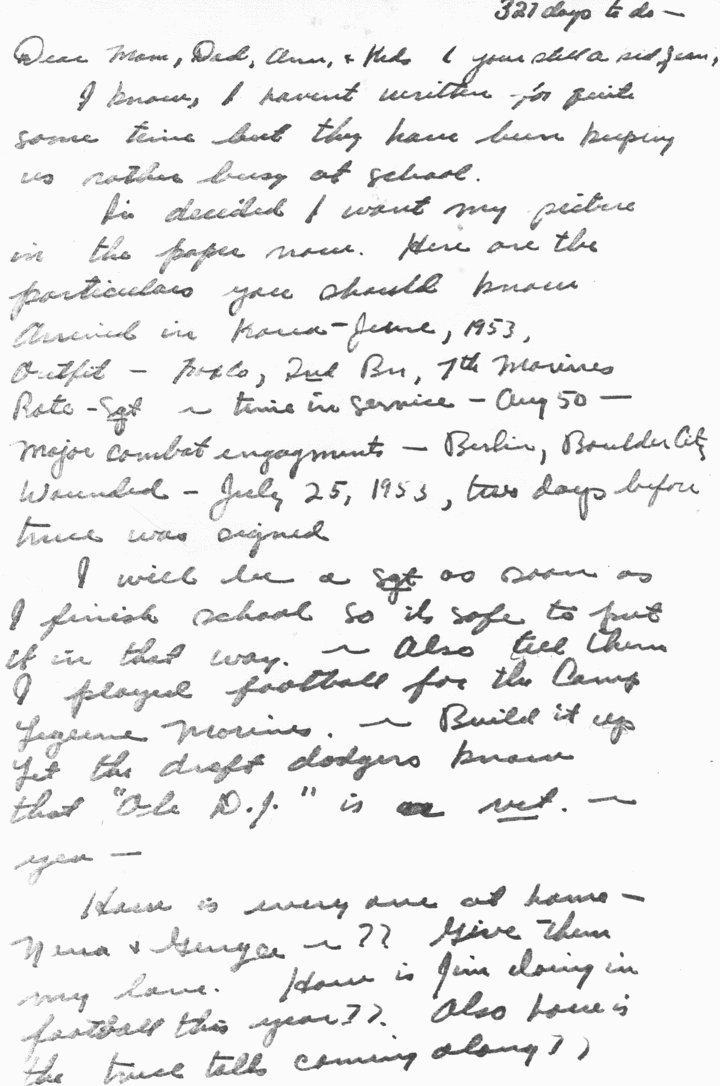 327 days to do —
Dear Mom, Dad, Ann, & Kids ( your still a kid, Jim,
I know, I havent written for quite
some time but they have been keeping
us rather busy at school.
I've decided I want my picture
in the paper now. Here are the
particulars you should know
Arrived in Korea – June, 1953,
Outfit – How Co, 2nd Bn, 7th Marines
Rate – Sgt ~ time in service – Aug 50 —
Major combat engagments — Berlin, Boulder City
Wounded – July 25, 1953, two days before
truce was signed
I will be a Sgt as soon as
I finish school so its safe to put
it in that way. ~ Also tell them
I played football for the Camp
Lejeune Marines. ~ Build it up
Let the draft dodgers know
that "Ole D.J." is a vet. ~
yea —
How is every one at home —
Nena & ~ ?? Give them
my love. How is Jim doing in
football this year??. Also how is
the truce talks coming along??